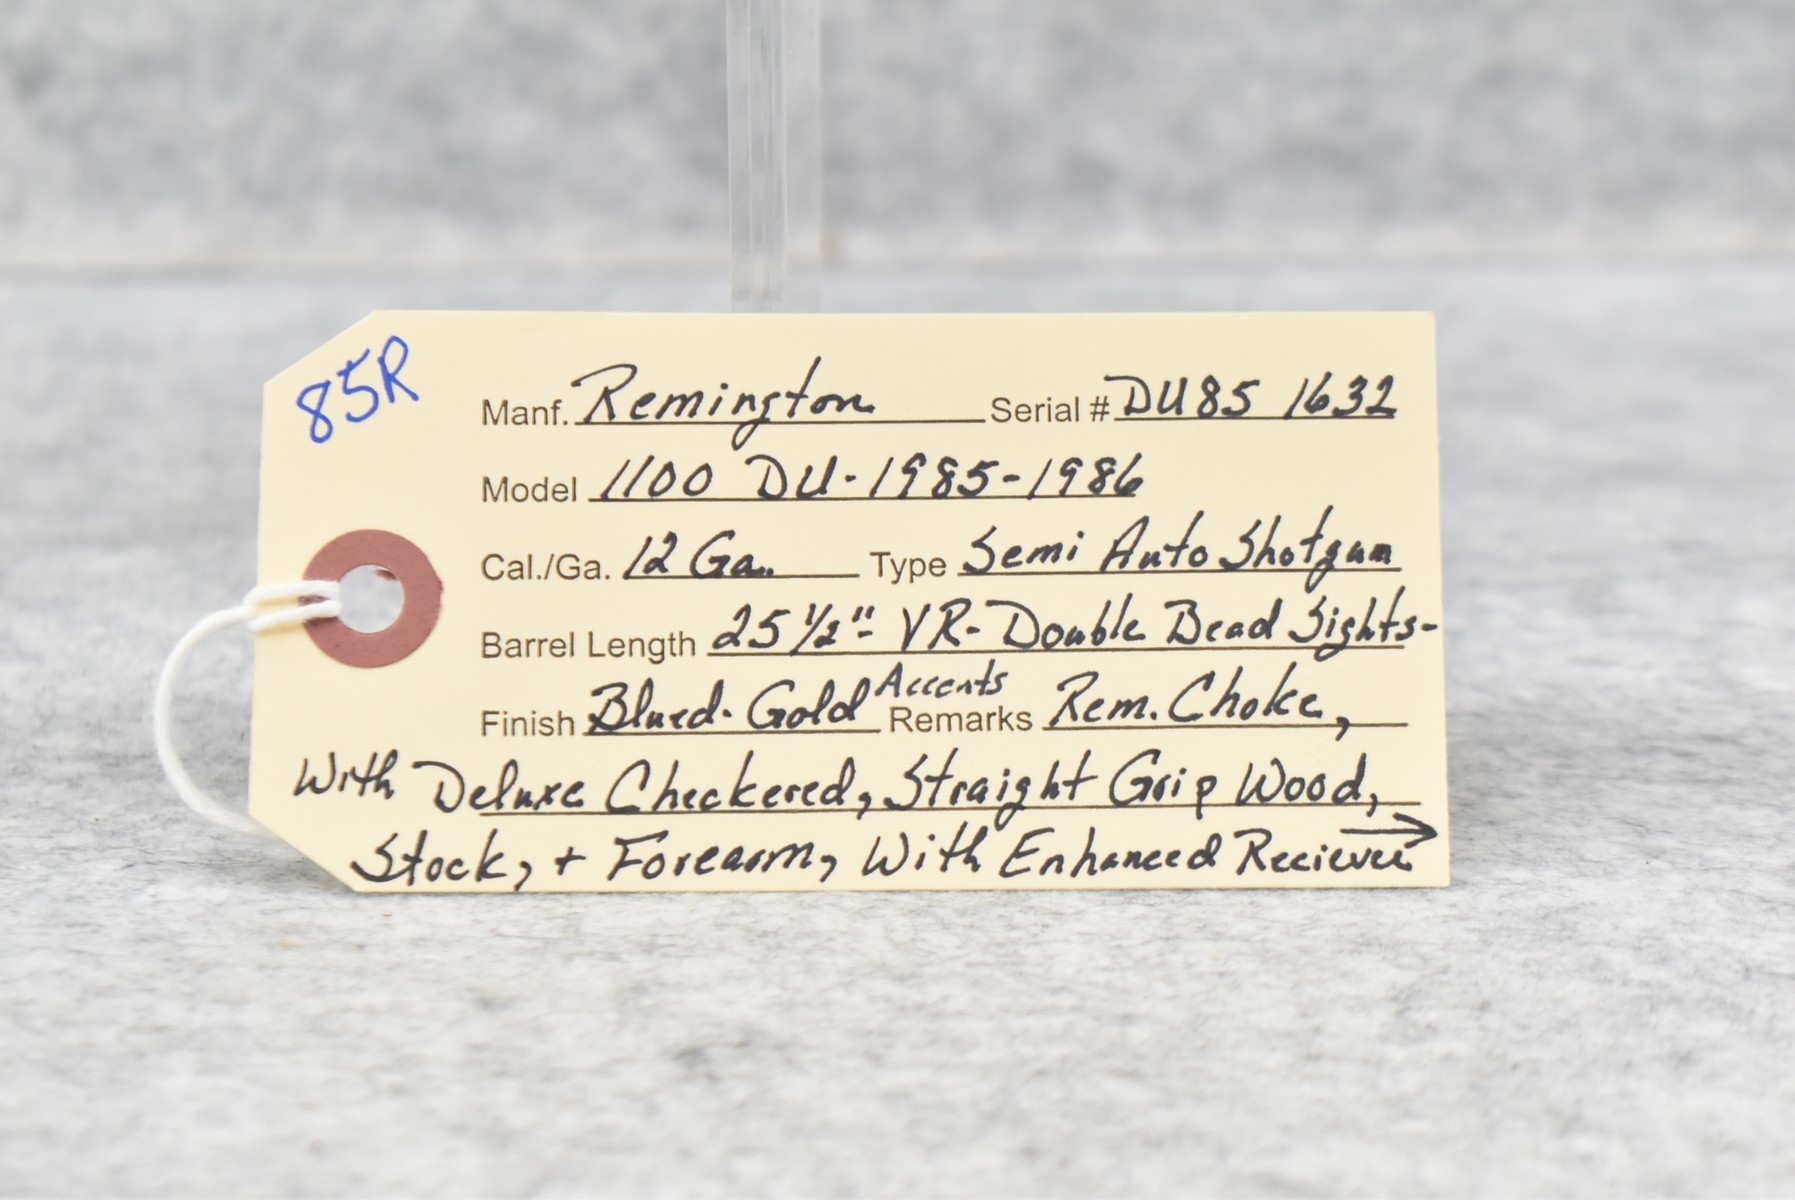 85R
Manf. Remington Serial # DU85 1632
Model 1100 DU-1985-1986
Cal./Ga. 12 Ga. Type Semi Auto Shotgun
Barrel Length 25 1/2"- VR- Double Bead Sights-
Finish Blued- Gold Accents Remarks Rem. Choke,
With Deluxe Checkered, Straight Grip Wood,
Stock, + Forearm, With Enhanced Reciever →